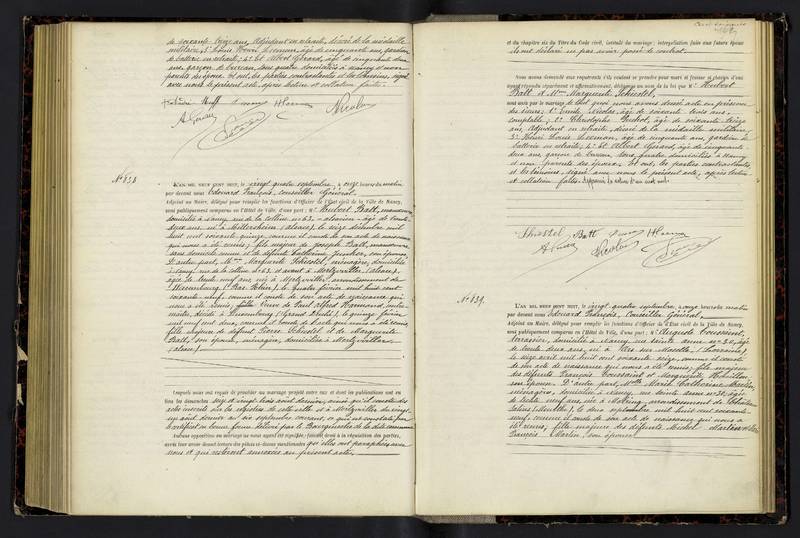 de soixante treize ans, Adjudant en retraite, décoré de la médaille
militaire, 3° Louis Henri Lhermon, âgé de cinquante ans, gardien
de batterie en retraite, 4° Et Albert Gérard, âgé de cinquante deux
ans, garçon de bureau, tous quatre domiciliés à Nancy et non
parents des époux. Et ont, les parties contractantes et les témoins, signé
avec nous le présent acte, après lecture et collation faite.
N° 838
L'AN MIL NEUF CENT HUIT, le vingt quatre septembre, à onze heures du matin
par devant nous Edouard François, Conseiller Général,
Adjoint au Maire, délégué pour remplir les fonctions d'Officier de l'Etat civil de la Ville de Nancy,
sont publiquement comparus en l'Hôtel de Ville, d'une part: Mr Hubert Batt, manœuvre
domicilié à Nancy rue de la colline n° 63, alsacien, âgé de trente
deux ans, né à Mittersheim (Alsace), le seize décembre mil
huit cent soixante quinze, comme il conste de son acte de naissance
qui nous a été remis; fils majeur de Joseph Batt, manœuvre
sans domicile connu et de défunte Catherine Juncker, son épouse,
D'autre part, Mme Marguerite Schiestel, ménagère, domiciliée
à Nancy rue de la colline n° 63 et avant à Mertzwiller (Alsace),
âgée de trente neuf ans, née à Mertzwiller, arrondissement de
Wissembourg (Bas-Rhin), le quatre février mil huit cent
soixante-neuf, comme il conste de son acte de naissance qui
nous a été remis, fille Veuve de Paul Alfred Hammand,
décédé à Luxembourg (Grand Duché), le quinze février
mil neuf cent deux, comme il conste de l'acte qui nous a été remis,
fille majeure de défunt Pierre Schiestel et de Marguerite
Batt, son épouse, ménagère, domiciliée à Mertzwiller
(Alsace)
Lesquels nous ont requis de procéder au mariage projeté entre eux et dont les publications ont eu
lieu les dimanches seize et vingt trois août dernier, ainsi qu'il conste des
actes inscrits sur les registres de cette ville et à Mertzwiller du vingt
un août dernier au six septembre courant, ce qui est constaté par
le certificat en bonne forme délivré par le Bourgmestre de la dite commune
Aucune opposition au mariage ne nous ayant été signifiée, faisant droit à la réquisition des parties,
après leur avoir donné lecture des pièces ci-dessus mentionnées qu'elles ont paraphées avec
nous et qui resteront annexées au présent acte,
et du chapitre six du Titre du Code civil, intitulé du mariage; interpellation faite aux futurs époux
ils ont déclaré ne pas avoir passé de contrat.
Nous avons demandé aux requérants s'ils veulent se prendre pour mari et femme et chacun d'eux
ayant répondu séparément et affirmativement, déclarons au nom de la loi que Mr Hubert
Batt et Mme Marguerite Schiestel,
sont unis par le mariage de tout quoi nous avons dressé acte en présence
des sieurs: 1° Emile Nicolas, âgé de soixante trois ans,
comptable; 2° Christophe Guchot, âgé de soixante treize
ans, Adjudant en retraite, décoré de la médaille militaire
3° Henri Louis Lhermon, âgé de cinquante ans, gardien de
batterie en retraite, 4° Et Albert Gérard, âgé de cinquante
deux ans, garçon de bureau, tous quatre domiciliés à Nancy
et non parents des époux. Et ont, les parties contractantes
et les témoins, signé avec nous le présent acte, après lecture
et collation faites.
Schiestel Batt
Nicolas
N° 839.
L'AN MIL NEUF CENT HUIT, le vingt quatre septembre, à onze heures du matin
par devant nous Edouard François, Conseiller Général,
Adjoint au Maire, délégué pour remplir les fonctions d'Officier de l'Etat civil de la Ville de Nancy,
sont publiquement comparus en l'Hôtel de Ville, d'une part: Mr Auguste Toussaint,
terrassier, domicilié à Nancy rue Sainte Anne n° 30, âgé
de trente deux ans, né à Ars sur Moselle (Lorraine),
le seize avril mil huit cent soixante seize, comme il conste
de son acte de naissance qui nous a été remis; fils majeur
des défunts François Toussaint et Marguerite
son épouse. D'autre part, Melle Marie Catherine Martin
ménagère, domiciliée à Nancy, rue Sainte Anne n° 30, âgée
de trente neuf ans, née à arrondissement de Château
Salins (Meurthe), le deux septembre mil huit cent soixante
neuf, comme il conste de son acte de naissance qui nous a
été remis; fille majeure des défunts Michel Martin et de
François Martin, son épouse